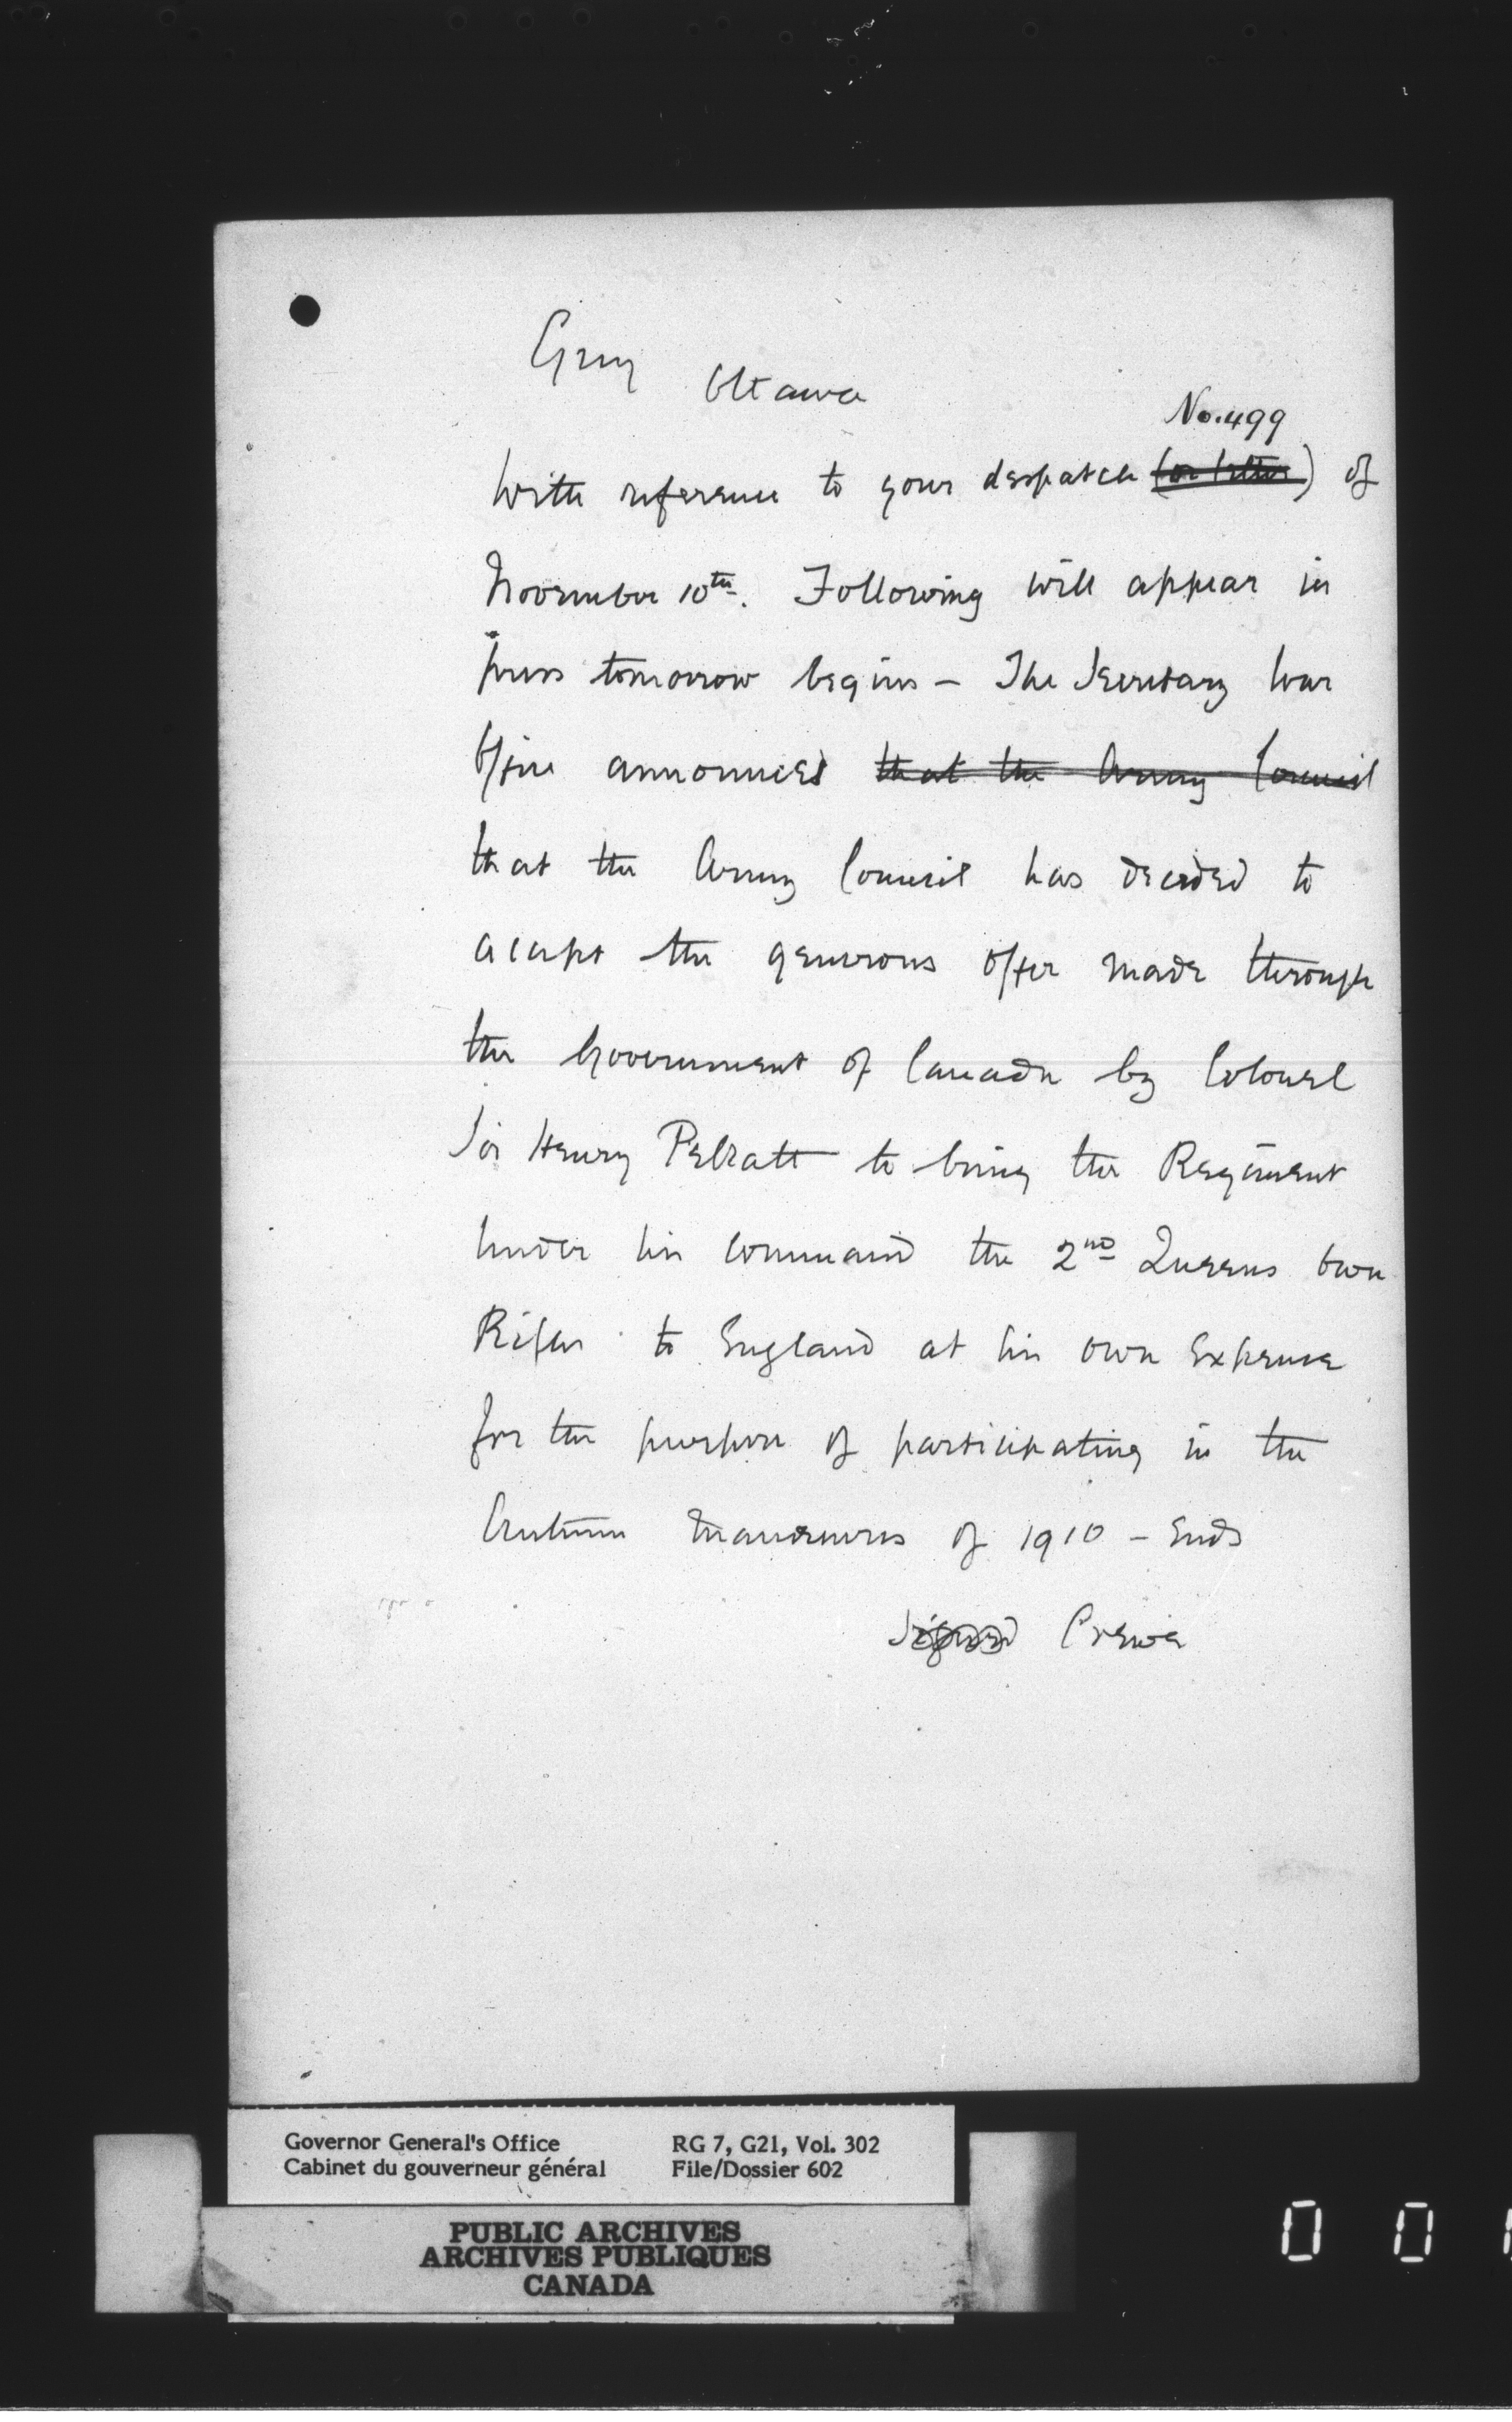 Grey Ottawa
No. 499
With reference to your despatch (or letter) of
November 10th. Following will appear in
press tomorrow begins – The Secretary War
Office announces that the Army Council
that the Army Council has decided to
accept the generous offer made through
the Government of Canada by Colonel
Sir Henry Pellatt to bring the Regiment
under his command the 2nd Queens Own
Rifles to England at his own expense
for the purpose of participating in the
Autumn Manoeuvres of 1910 – Ends
Signed Crewe
Governor General's Office RG 7, G21, Vol. 302
Cabinet du gouverneur général File/Dossier 602
PUBLIC ARCHIVES
ARCHIVES PUBLIQUES
CANADA
0 0